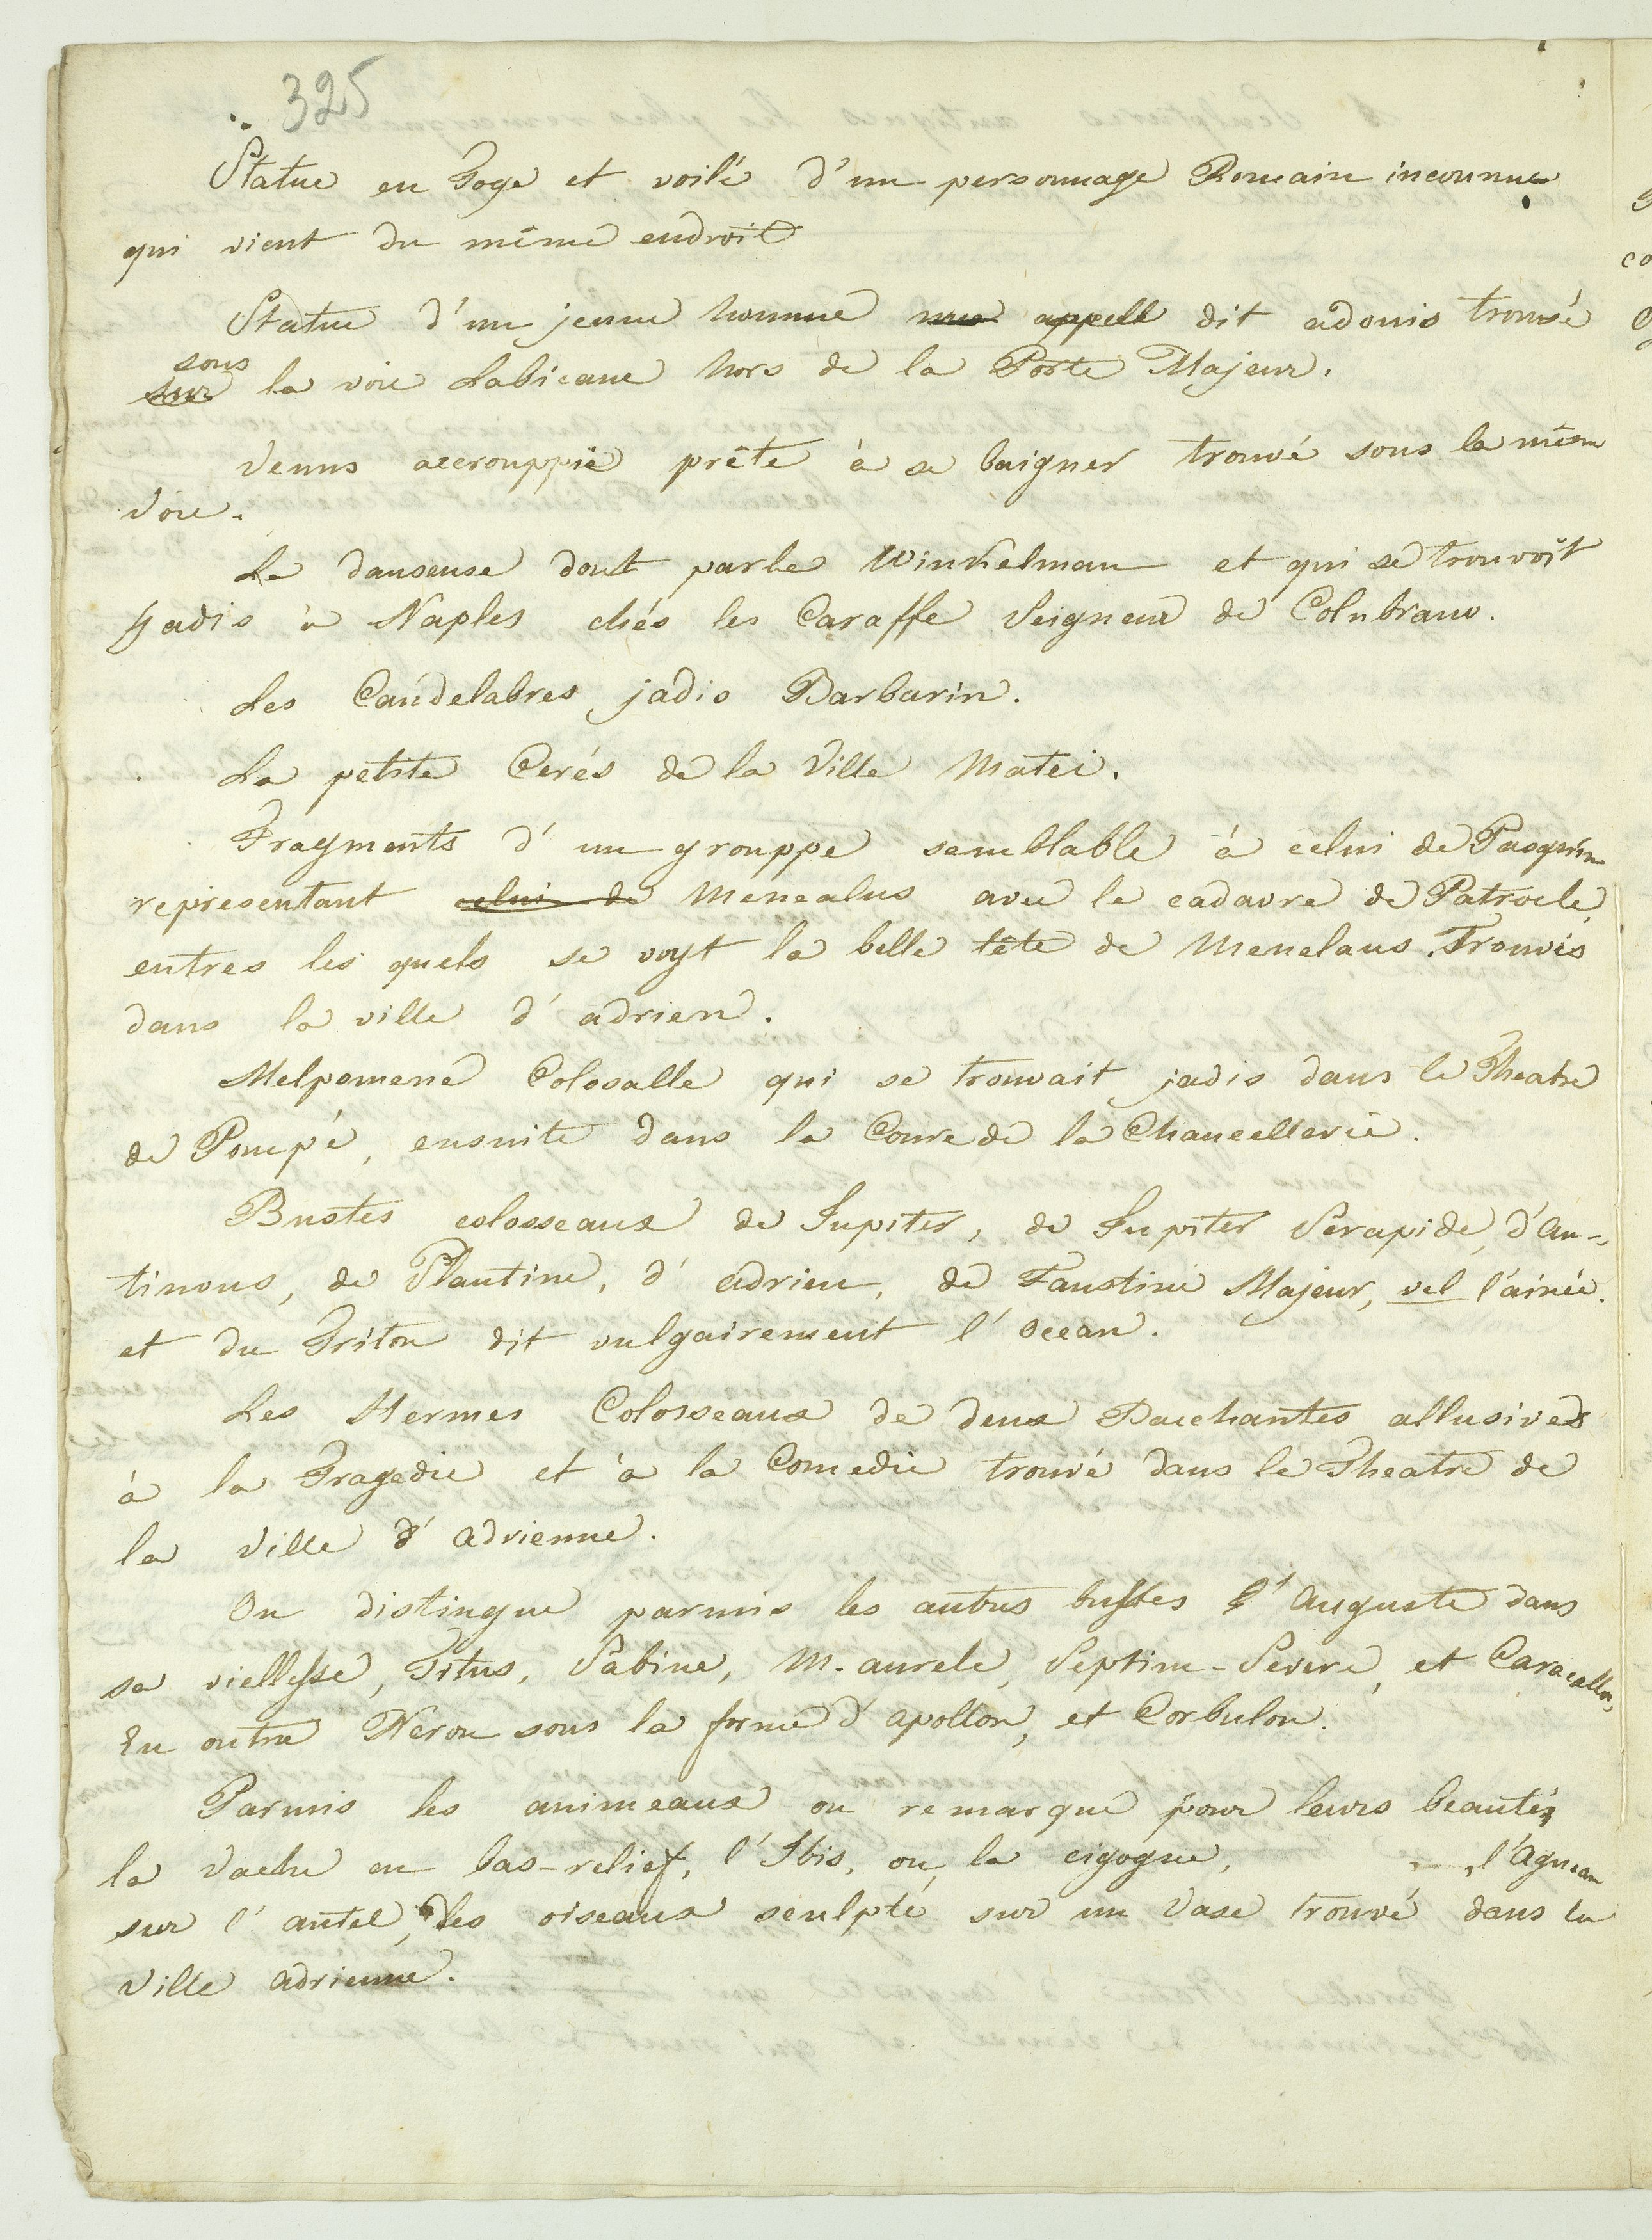 325
Statue en Toge et voilé d'un personnage Romain inconnue
qui vient du même endroit
Statue d'un jeune homme nue appellé dit adonis trouvé
sous
sur la voie Labicane hors de la Porte Majeur.
Venus accrouppie prête à se baigner trouvé sous la même
voie.
La danseuse dont parle Winkelman et qui se trouvoit
jadis à Naples chés les Caraffe Seigneur de Colubrano.
Les Candelabres jadis Barbarin.
La petite Cerés de la Ville Matei.
Fragments d'un grouppe semblable à celui de Pasquin
representant celui de Menealus avec le cadavre de Patrocle,
entres les quels se voyt la belle tête de Menelaus. Trouvés
dans la ville d'adrien.
Melpomene Colosalle qui se trouvait jadis dans le Theatre
de Pompé, ensuite dans la Coure de la Chancellerie.
Bustes colosseaux de Jupiter, de Jupiter Serapide, d'An-
tinous, de Plautine, d'adrien, de Faustine Majeur, vel l'ainée.
et du Triton dit vulgairement l'Ocean.
Les Hermes Colosseaux de deux Bacchantes allusives
à la Tragedie et à la Comedie trouvé dans le Theatre de
la Ville d'Adrienne.
On distingue parmis les autres bustes d'Auguste dans
sa viellesse, Titus, Sabine, M. aurele, Septime-Severe, et Caracalla,
En outre Neron sous la forme d'apollon, et Corbulon.
Parmis les animeaux on remarque pour leurs beautés
la Vache en bas-relief, l'Ibis, ou la cigogne, l'Agneau
sur l'autel, des oiseaux sculpté sur un Vase trouvé dans la
Ville adrienne.